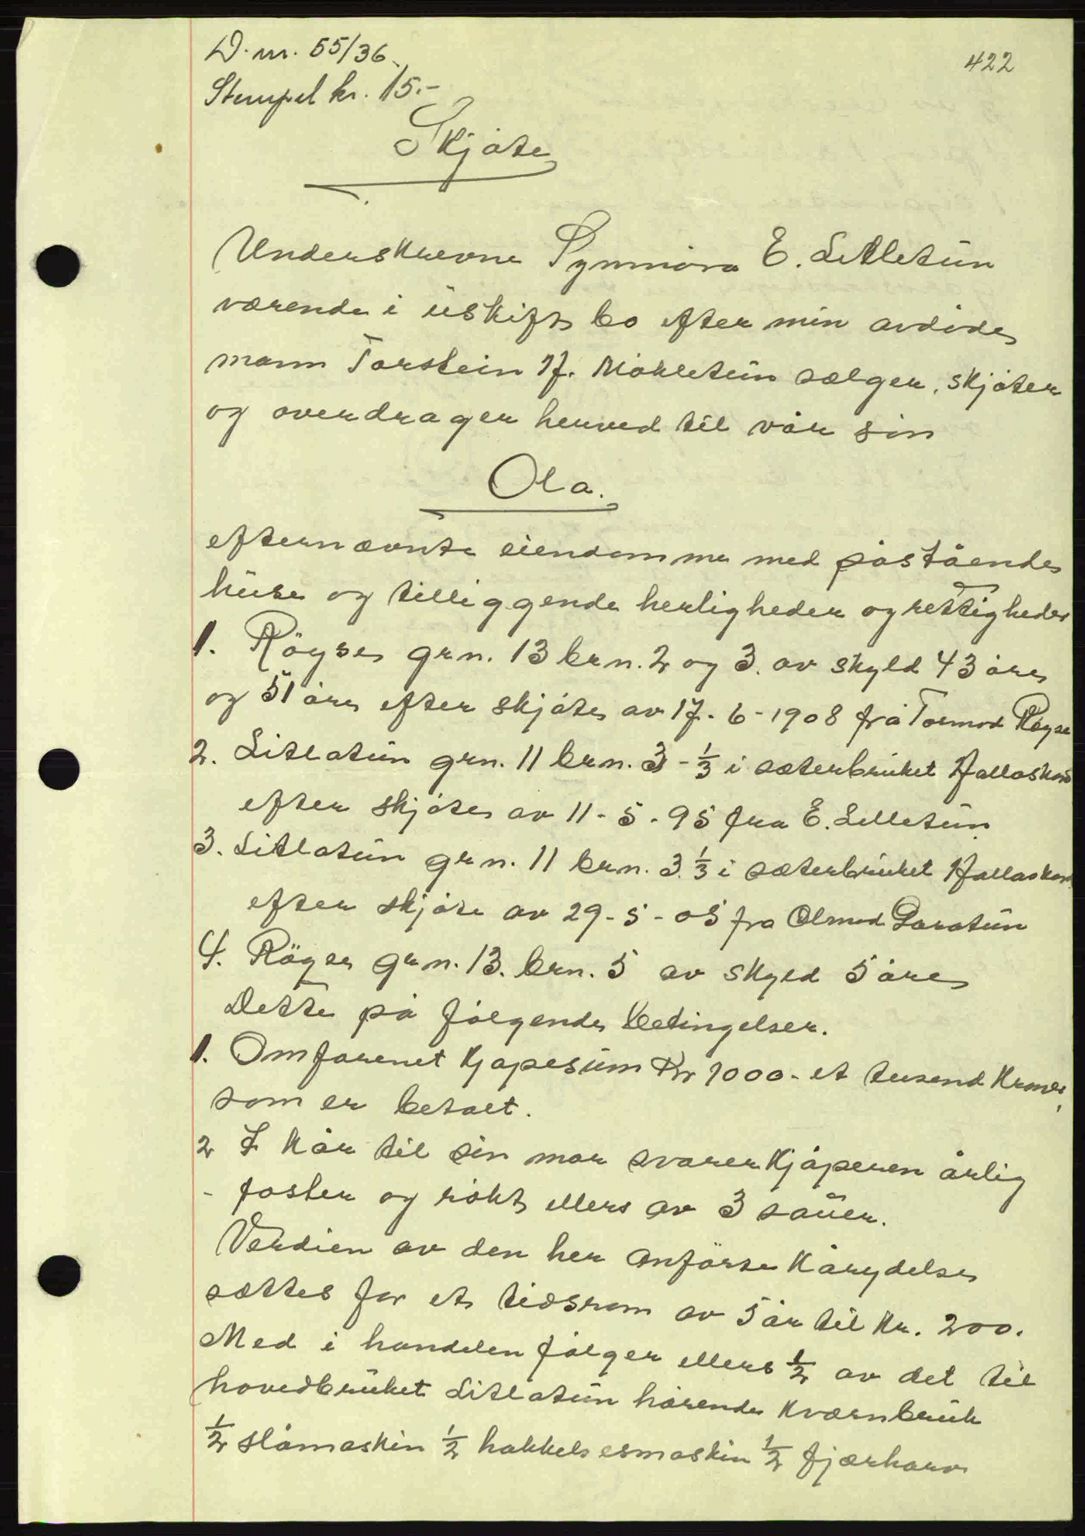 D. nr. 55/36.
422
Stempel kr. 15.-
Skjøte
Underskrevne Synnöva E. Litletun
værende i uskifte bo efter min avdöde
mann Torstein N. Möhletun sælger, skjöter
og overdrager herved til vår sön
Ola.
efternævnte eiendomme med påstående
huse og tilliggende herligheder og rettigheder
1. Röyse grn. 13 brn. 2 og 3. av skyld 43 öre
og 51 öre efter skjöte av 17-6-1908 frå Tormod Röyse
2. Litlatun grn. 11 brn. 3 - 1/3 i sæterbruket Hallaskar
efter skjöte av 11-5-95 fra E. Lilletun
3. Litlatun grn. 11 brn. 3. 1/3 i sæterbruket Hallaskar
efter skjöte av 29-5-05 fra Olmod
4. Röyse grn. 13. brn. 5 av skyld 5 öre
Dette på fölgende betingelser.
1. Omforenet kjöpesum Kr 1000.- et tusend kroner,
som er betalt.
2 I kår til sin mor svarer kjöperen årlig
- foster og rökt ellers av 3 sauer.
Verdien av den her anförte kårydelse
sættes for et tidsrom av 5 år til kr. 200.
Med i handelen fölger ellers 1/2 av det til
hovedbruket Litlatun hörende kværnbruk
1/2 slåmaskin 1/2 hakkelsesmaskin 1/2 fjærharv